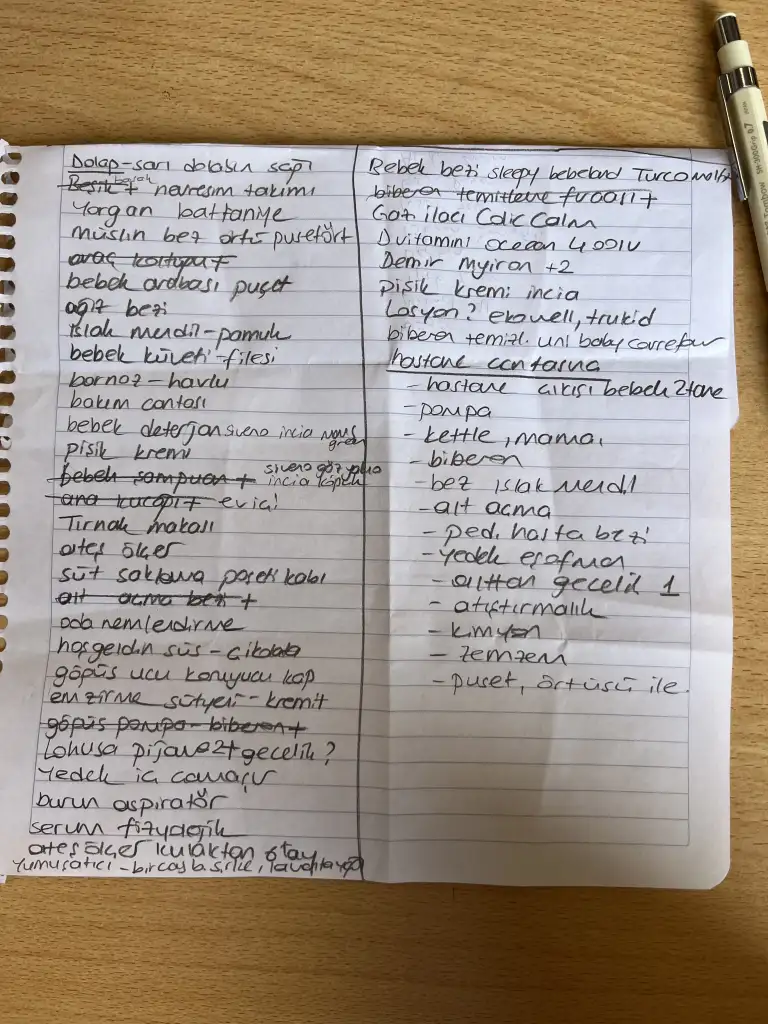 Dolap-sarı dolabın sapı
Beşik + başak nevresim takımı
Yorgan battaniye
müslin bez örtü pusetört
araç koltuğu +
bebek arabası puset
ağız bezi
ıslak mendil-pamuk
bebek küveti-filesi
bornoz-havlu
bakım cantası
bebek deterjan siveno incia
green
pişik kremi
bebek şampuan + siveno göz yakmo
incia köpük
ana kucağı + evici
Tırnak makası
ateş ölçer
süt saklama poşeti kabı
alt açma bezi +
oda nemlendirme
hoşgeldin süs-cikolata
göğüs ucu koruyucu kap
emzirme sütyeni-kremit
göğüs pompa-biberon +
Lohusa pijama 2+ gecelik?
Yedek iç camaşır
burun aspiratör
serum fizyolojik
ateş ölçer kulaktan
yumuşatıcı-
Bebek bezi sleepy bebeland Turco
biberon temizleme fırçası +
Gaz ilacı Colic Calm
D vitamini ocean 400IU
Demir Myiron +2
pişik kremi incia
Losyon? ekowell, trukid
biberon temizl. uni baby carrefur
hastane cantasına
- hastane cıkışı bebek 2tane
- pompa
- kettle, mama,
- biberon
- bez ıslak mendil
- alt acma
- ped. hasta bezi
- Yedek eşofman
- alttan gecelik 1
- atıştırmalık
- kimyon
- zemzem
- puset, örtüsü ile.